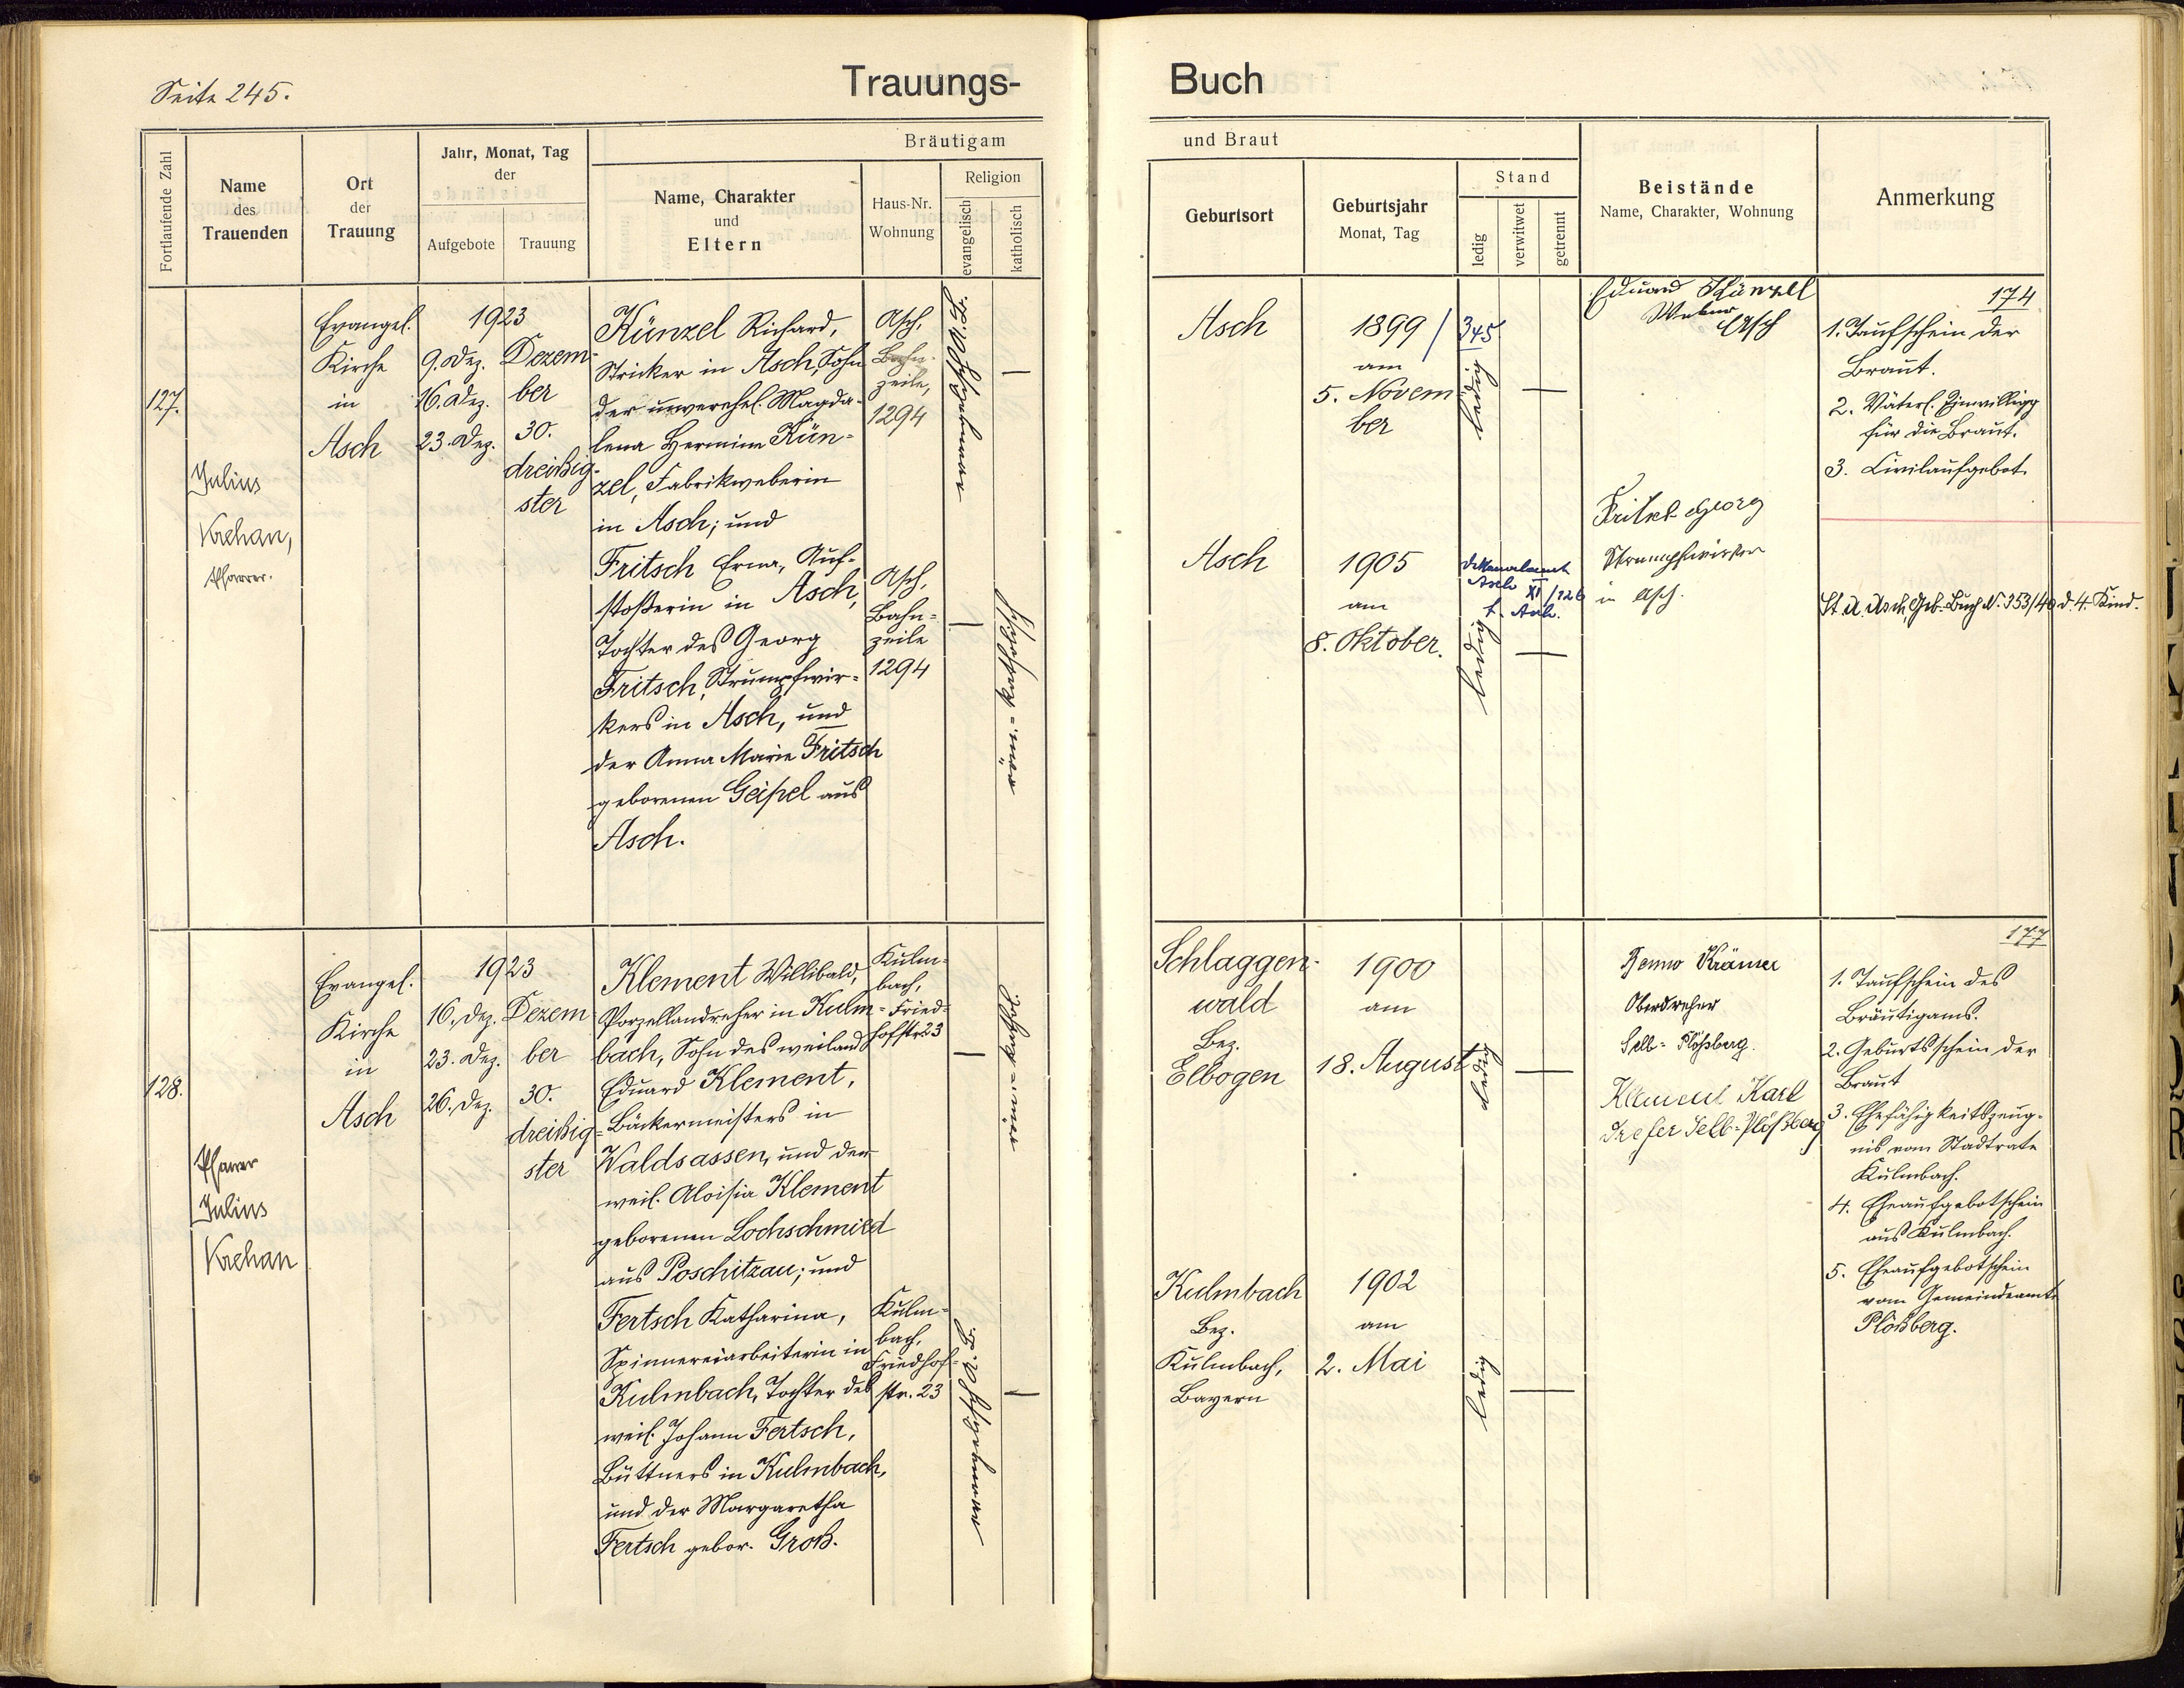 Seite 245.
Trauungs-
Buch
Fortlaufende Zahl
Name
des
Trauenden
Ort
der
Trauung
Jahr, Monat, Tag
der
Aufgebote
Trauung
Bräutigam
Name, Charakter
und
Eltern
Haus-Nr.
Wohnung
Religion
evangelisch
katholisch
und Braut
Geburtsort
Geburtsjahr
Monat, Tag
Stand
ledig
verwitwet
getrennt
Beistände
Name, Charakter, Wohnung
Anmerkung
127.
Julius
Krehan,
Pfarrer.
Evangel.
Kirche
in
Asch
1923
9. Dez.
16. Dez.
23. Dez.
Dezem-
ber
30.
dreißig-
ster
Künzel Richard,
Stricker in Asch, Sohn
der unverehel. Magda-
lena Hermine Kün-
zel, Fabrikweberin
in Asch; und
Fritsch Erna, Auf-
stoßerin in Asch,
Tochter des Georg
Fritsch, Strumpfwir-
kers in Asch, und
der Anna Marie Fritsch
geborenen Geipel aus
Asch.
Asch,
Bahn-
zeile,
1294
Asch,
Bahn-
zeile
1294
röm.=katholisch
Asch
1899
am
5. Novem
ber
345.
ledig
Asch
1905
am
8. Oktober.
Asch XI/226
ledig
Eduard Künzell
Weber
Asch
Georg
Strumpfwirker
in Asch.
174
1. Taufschein der
Braut.
2. Väterl. Einwilligg
für die Braut.
3. Civilaufgebot.
St. A. Asch, Geb. Buch N. 353/40 d. 4. Kind.
128.
Pfarrer
Julius
Krehan
Evangel.
Kirche
in
Asch
1923
16. Dez.
23. Dez.
26. Dez.
Dezem
ber
30.
dreißig=
ster
Klement Willibald,
Porzellandreher in Kulm=
bach, Sohn des weiland
Eduard Klement,
Bäckermeisters in
Waldsassen, und der
weil. Aloisia Klement
geborenen Lochschmied
aus Poschitzau; und
Fertsch Katharina,
Spinnereiarbeiterin in
Kulmbach, Tochter des
weil. Johann Fertsch,
Büttners in Kulmbach,
und der Margaretha
Fertsch gebor. Groß.
Kulm-
bach,
Fried-
hofstr. 23
Kulm-
bach,
Friedhof-
str. 23
röm.=kathol.
Schlaggen-
wald
Bez.
Elbogen
1900
am
18. August
ledig
Kulmbach
Bez.
Kulmbach,
Bayern
1902
am
2. Mai
ledig
Benno Krämer
Oberdreher
Selb-Plößberg.
Klement Karl
Dreher Selb-Plößberg
177
1. Taufschein des
Bräutigams.
2. Geburtsschein der
Braut
3. Ehefähigkeitszeug-
nis vom Stadtrate
Kulmbach.
4. Eheaufgebotschein
aus Kulmbach.
5. Eheaufgebotschein
vom Gemeindeamte
Plößberg.